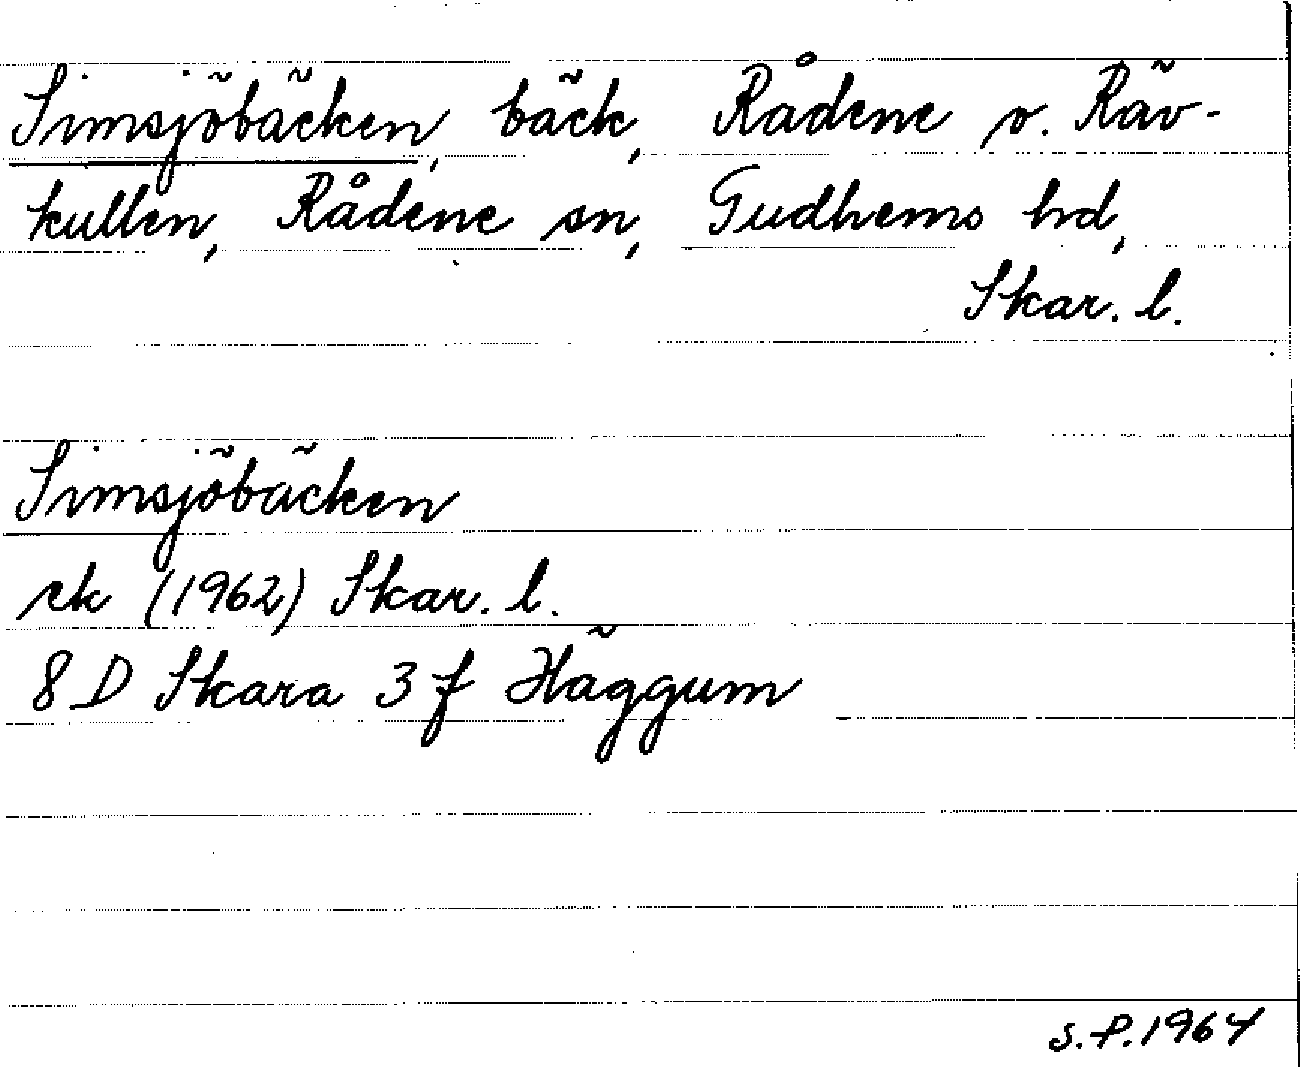 Simsjöbäcken, bäck, Rådene v. Räv-
kullen, Rådene sn, Gudhems hd,
Skar. l.
Simsjöbäcken
rk (1962) Skar. l.
8 D Skara 3 f Häggum
S.P. 1964